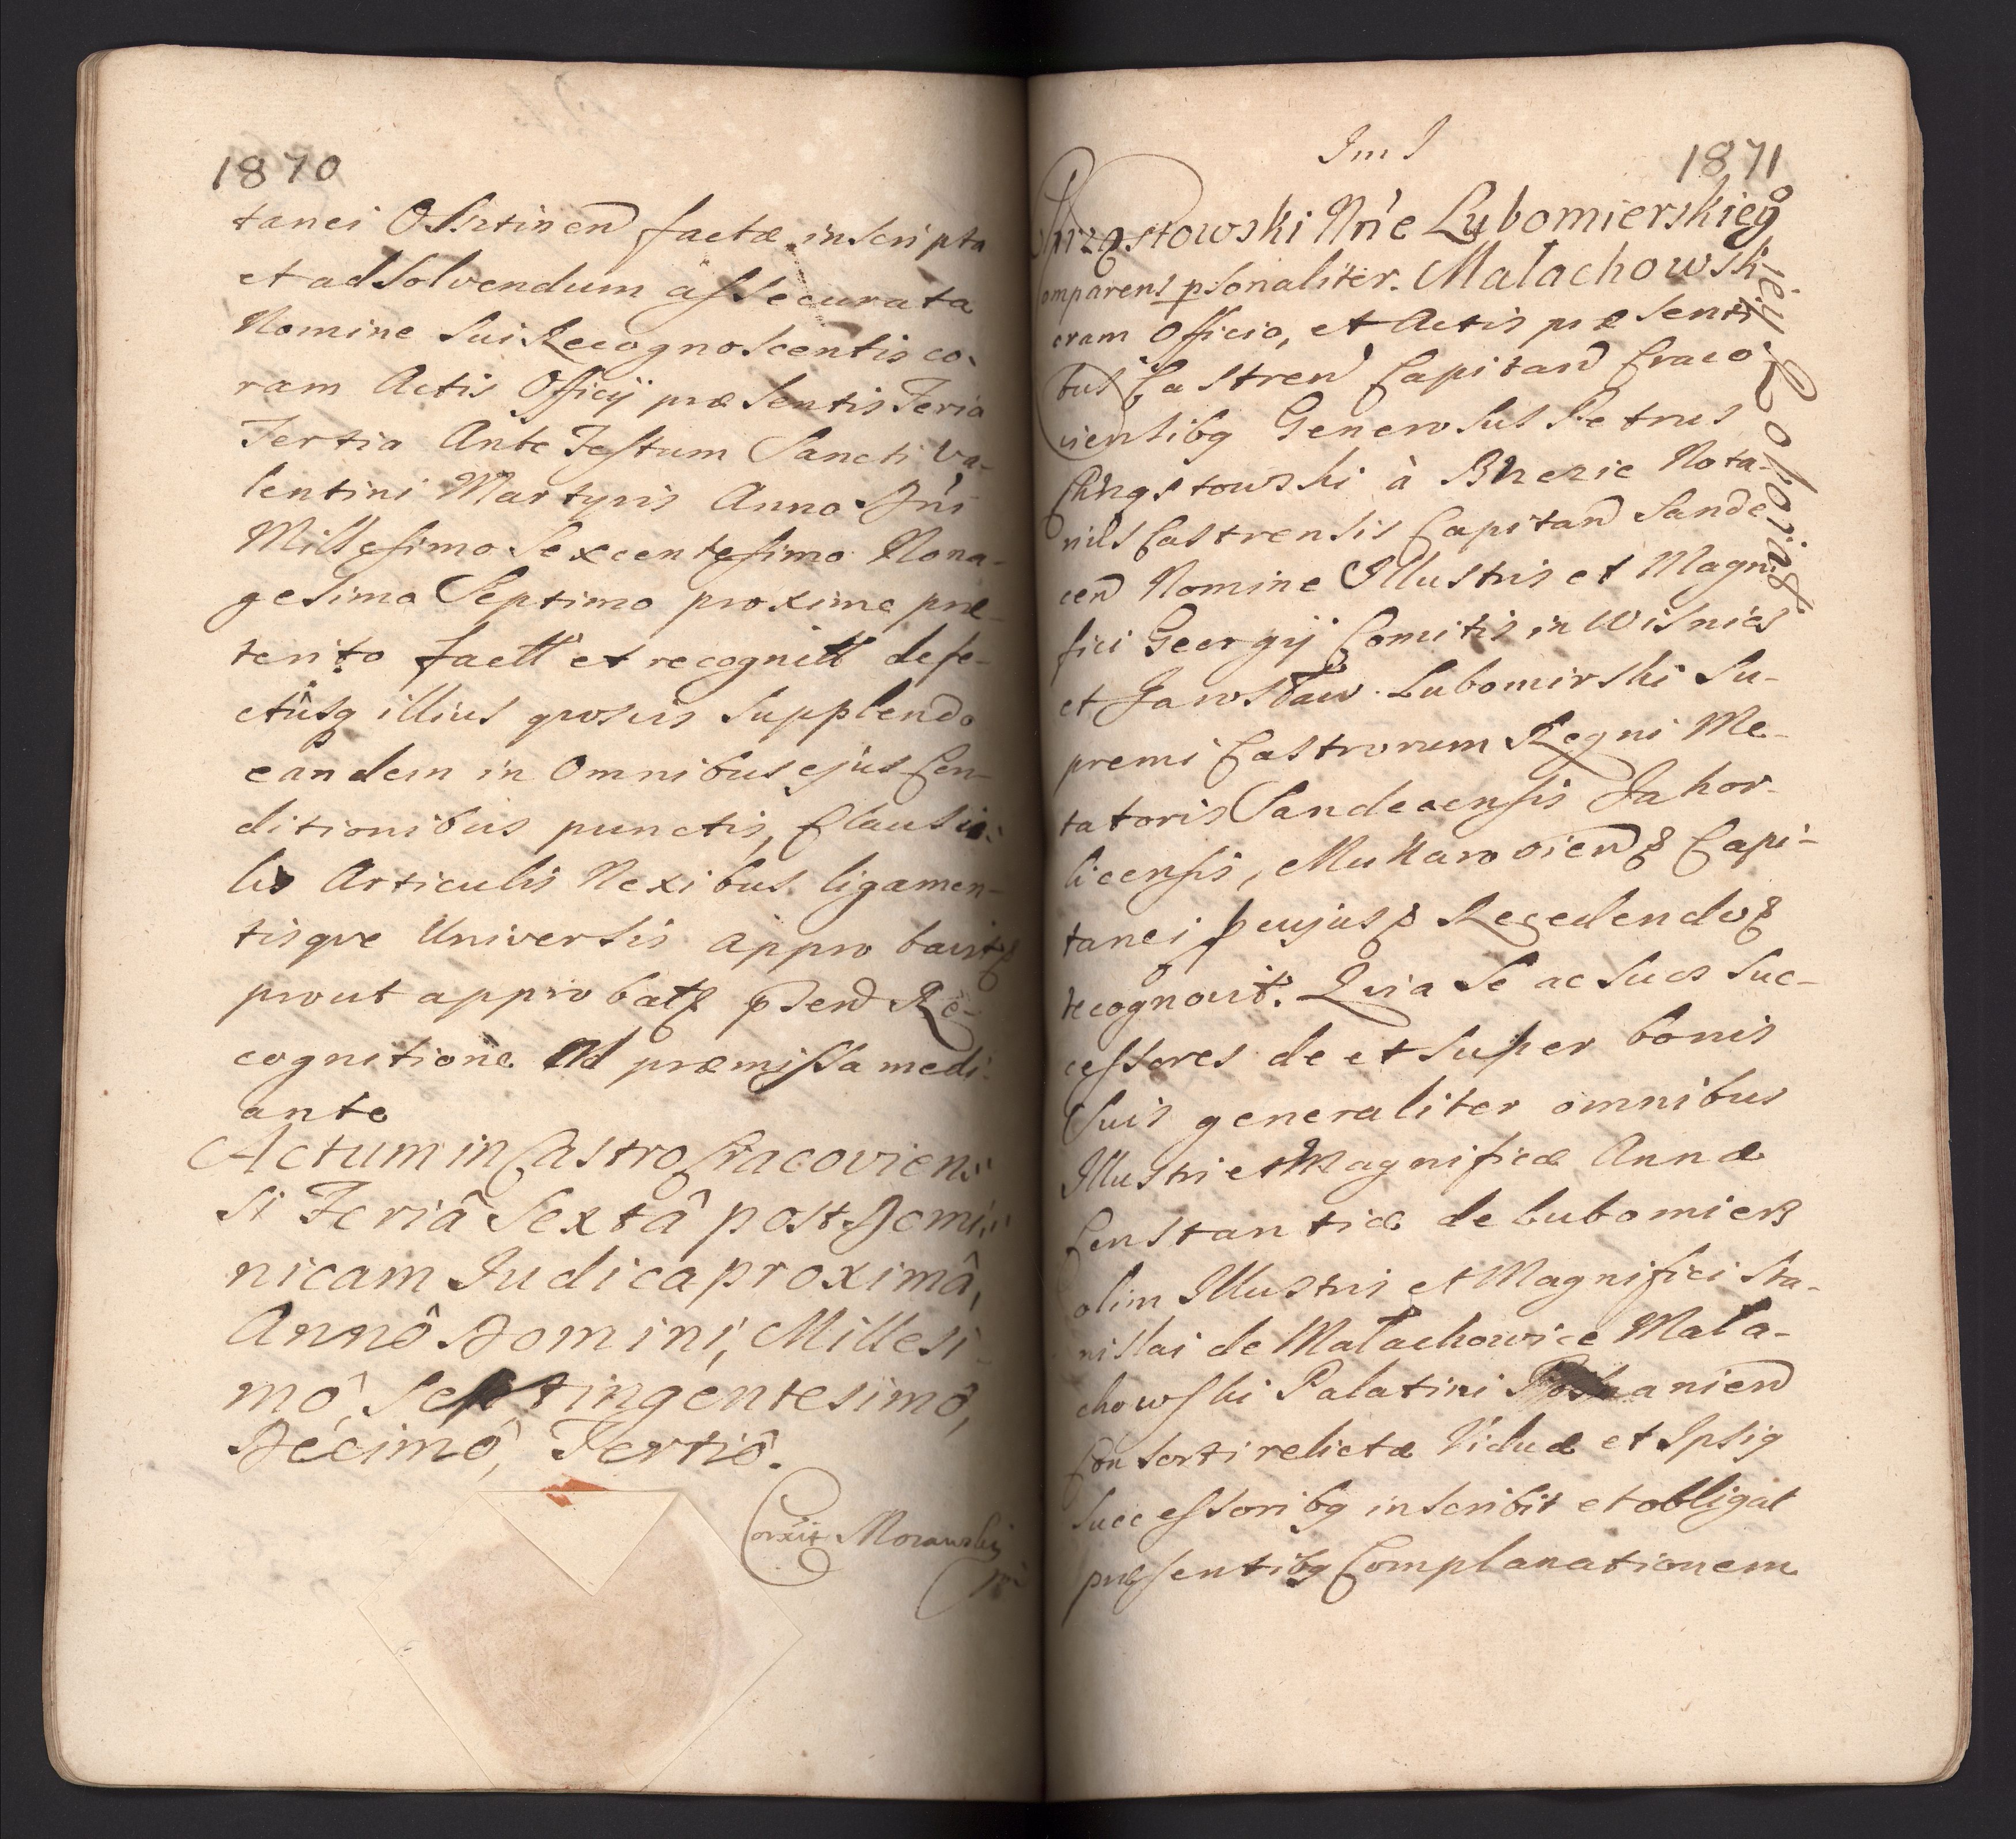 1870
tanei Osstinen factæ inscripta
et ad Solvendum assecurata
Nomine Sui Recognoscentis co-
ram Actis Officÿ præsentis Feria
Tertia Ante Festum Sancti Va-
lentini Martyris Anno Dni
Millesimo Sexcentesimo Nona-
gesimo Septimo proxime præ-
terito factt et recognitt defe-
ctûsq illius quosvis Supplendo
eandem in Omnibus ejus Con-
ditionibus punctis, Clausu-
lis Articulis Nexibus ligamen-
tisque Universis approbavit
prout approbat pnsen Re-
cognitione Ad præmissa medi-
ante
Actum in Castro Cracovien-
si Feriâ Sextâ post Domi-
nicam Judica proximâ,
Annô Domini, Millesi-
mô, Septingentesimô,
Decimô, Tertiô.
Corxit Morawski
mp
Im J
1871
Chrząstowski Nne Lubomierskieg°
omparens psonaliter. Małachowskiey Roboriag
oram Officio, et Actis præsenti
bus Castren Capitan Craco
viensibq Generosus Petrus
Chrząstowski à Brzezie Nota-
rius Castrensis Capitan Sande
cen Nomine Illustris et Magni
fici Georgij Comitis in Wisnicz
et Jarosław Lubomirski Su-
premi Castrorum Regni Me-
tatoris Sandecensis Jahor-
licensis, Mukarovien Capi-
tanei cujus Recedendo
recognovit: Quia Se ac Suos Suc-
cessores de et super bonis
Suis generaliter omnibus
Illustri et Magnificæ Annæ
Constantiæ de Lubomierz
olim Illustris et Magnifici Sta-
nislai de Małachowice Mała-
chowski Palatini Posnanien
Consorti relictæ Viduæ et Ipsiq
Successoribq inscribit et obligat
præsentibq Complanationem